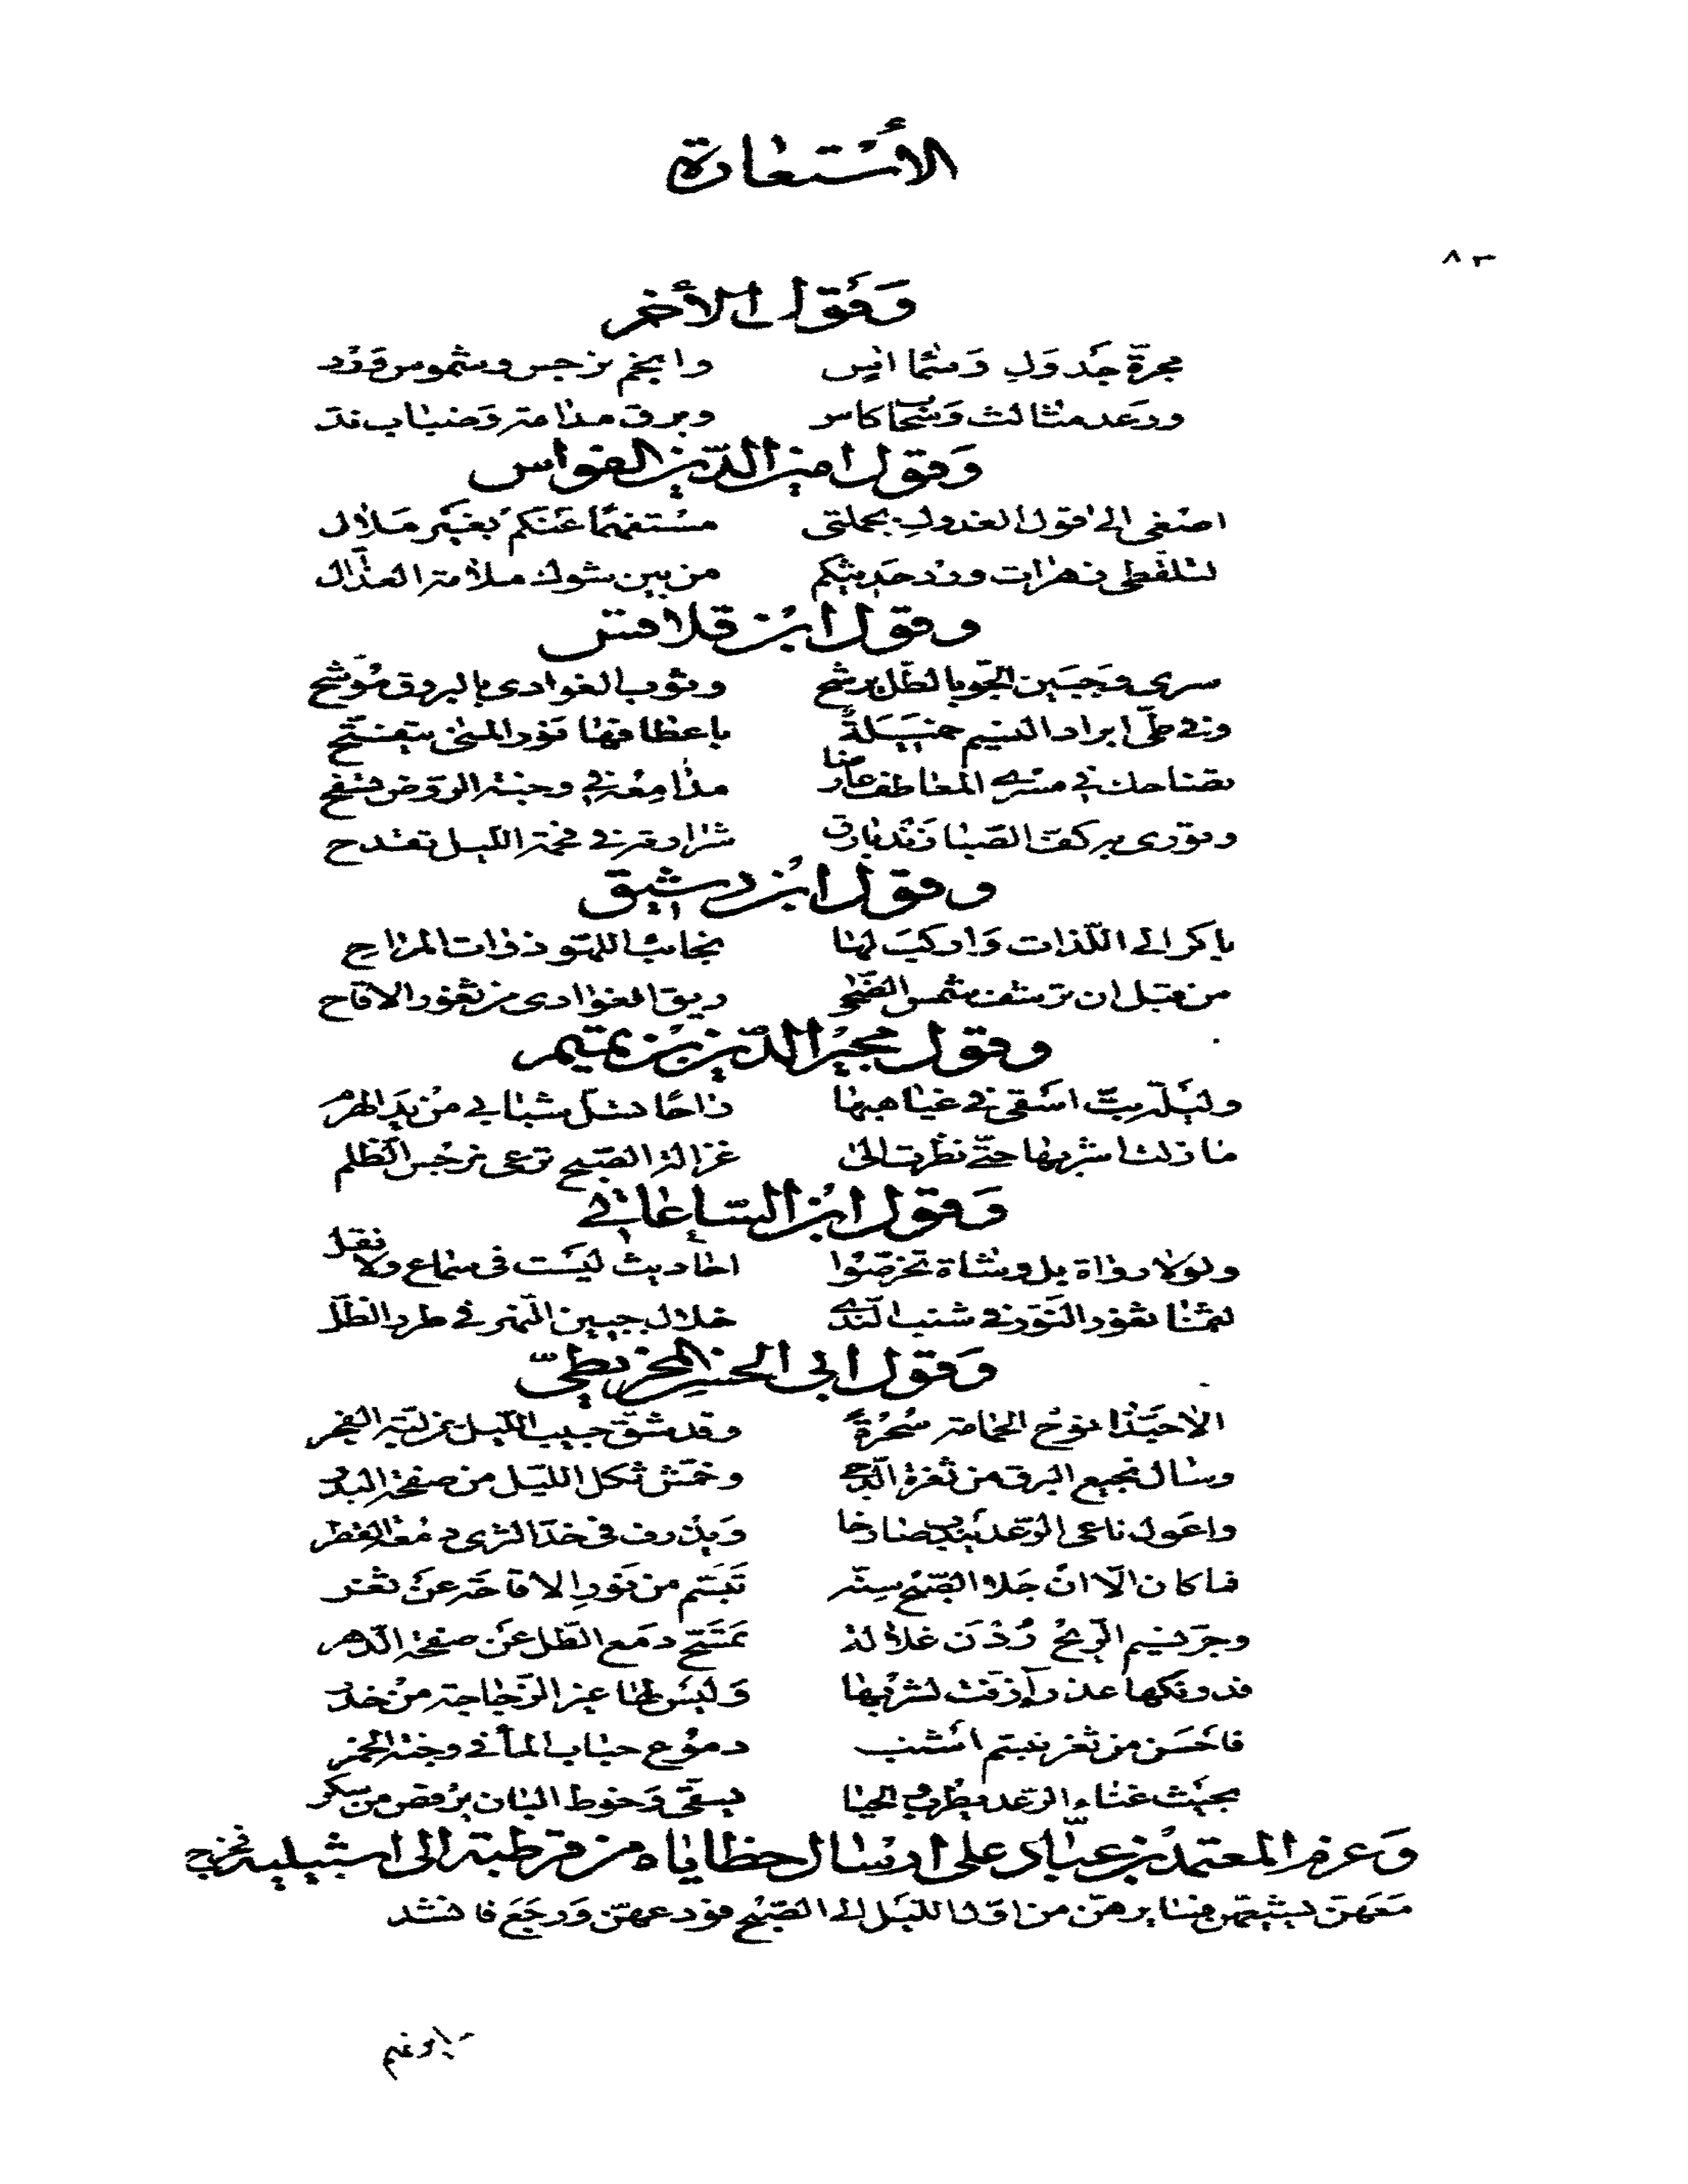 الأستعارة
٨٣
وَقول الأخر
مجرّة جَدوَلِ وَسَما اٰسٍ وانجم نرجس وشموس وَرْد
ورَعد مثالث وَسَحاب كاس وبرق مدامة وَضباب ند
وَقول امين الدّين القواس
اصغى الى قول العذولِ بجملتى مستفهمًا عَنكمُ بغيَر مَلال
لتلقّطى زهرات ورد حَديثكم من بين شوك ملامة العذّال
وقول ابن قلاقس
سرى وَجَبين الجّو بالطّل يرشح وثوب الغوادى بالبروق مُوّشح
وفي طىّ ابراد النسيم خميَلةً باعطافها نَور المنى يتفتّح
تضاحك في مسرى المعاطف عارضا مدامِعُه في وجنة الرّوض تسفح
وتورى به كفّ الصّبا زَند بارق شرارته في فحمة اللّيل تقدح
وقول ابن رشيق
باكر الى اللّذات وَاركَب لها نجائب اللهو ذوات المزاح
من قبل ان ترشف شمس الضّحى ريق الغوادى من ثغور الاقاح
وقول مجير الدّين بن تميم
وليَلة بتّ اسَقى في غياهبها راحًا تسلّ شبابي من يَد الهرم
ما زلت اشربها حتّى نظرت الى غزالة الصّبح ترعى نرجس الظّلم
وَقول ابن السّاعاتي
ولوَلا رواة بل وشاة تخرّصوا احاديث ليَست فى سماع ولا نقل
لثمنا ثغور النَّور في شنب النّدى خلال جبين النهر في طرة الظّل
وَقول ابى الحسن المخريطيّ
الا حبّذا نوح الحمامة سُحْرةً وقد شقّ جيب اللّيل عن لبّة الفجر
وسال نجيع البرق من ثغرة الدّجى وخمّش ثكل اللّيل من صفحة البدر
واعول ناعى الرّعد يَندب صارخا وَيذرف فى خدّ الثرى دمعَة القطر
فما كان الّا انْ جَلا الصّبح سِتره تَبَسّم من نَورِ الاقاحة عن ثغر
وجرّ نسيم الرّيح رُدْن غلالة تمسّح دمَع الطّل عَن صفحة الدّهر
فدونكها عذرآء زفّت لشربها وَليَس لها غير الزّجاجة من خدر
فاَحسَن من ثغر تبسّم اشنب دموع حباب المآ في وجنة الخمر
بحيَث غناء الرّعد يطرب والحيا يسقّى وَخوط البان يرقص من سكر
وَعزم المعتمد بن عبّاد على ارسال حظاياه من قرطبة الى اشبيلية فخرج
مَعَهنّ ليشيّعهنّ فسايرهنّ من اوّل اللّيَل الى الصّبح فودعهنّ وَرجَعَ فانشد